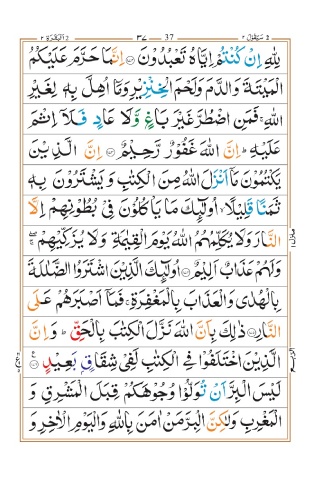 البقرة ٢ ٣٧ 37 سيقول ٢
لِلّٰهِ اِنْ كُنْتُمْ اِيَّاهُ تَعْبُدُوْنَ ﴿١٧٢﴾ اِنَّمَا حَرَّمَ عَلَيْكُمُ
الْمَيْتَةَ وَالدَّمَ وَلَحْمَ الْخِنْزِيْرِ وَمَاۤ اُهِلَّ بِهٖ لِغَيْرِ
اللّٰهِ ۚ فَمَنِ اضْطُرَّ غَيْرَ بَاغٍ وَّلَا عَادٍ فَلَاۤ اِثْمَ
عَلَيْهِ ؕ اِنَّ اللّٰهَ غَفُوْرٌ رَّحِيْمٌ ﴿١٧٣﴾ اِنَّ الَّذِيْنَ
يَكْتُمُوْنَ مَاۤ اَنْزَلَ اللّٰهُ مِنَ الْكِتٰبِ وَيَشْتَرُوْنَ بِهٖ
ثَمَنًا قَلِيْلًا ۙ اُولٰٓئِكَ مَا يَاْكُلُوْنَ فِيْ بُطُوْنِهِمْ اِلَّا
النَّارَ وَلَا يُكَلِّمُهُمُ اللّٰهُ يَوْمَ الْقِيٰمَةِ وَلَا يُزَكِّيْهِمْ ۖۚ
وَلَهُمْ عَذَابٌ اَلِيْمٌ ﴿١٧٤﴾ اُولٰٓئِكَ الَّذِيْنَ اشْتَرَوُا الضَّلٰلَةَ
بِالْهُدٰى وَالْعَذَابَ بِالْمَغْفِرَةِ ۚ فَمَاۤ اَصْبَرَهُمْ عَلَى
النَّارِ ﴿١٧٥﴾ ذٰلِكَ بِاَنَّ اللّٰهَ نَزَّلَ الْكِتٰبَ بِالْحَقِّ ؕ وَاِنَّ
الَّذِيْنَ اخْتَلَفُوْا فِي الْكِتٰبِ لَفِيْ شِقَاقٍۢ بَعِيْدٍ ﴿١٧٦﴾
لَيْسَ الْبِرَّ اَنْ تُوَلُّوْا وُجُوْهَكُمْ قِبَلَ الْمَشْرِقِ وَ
الْمَغْرِبِ وَلٰكِنَّ الْبِرَّ مَنْ اٰمَنَ بِاللّٰهِ وَالْيَوْمِ الْاٰخِرِ وَ
منزل ١